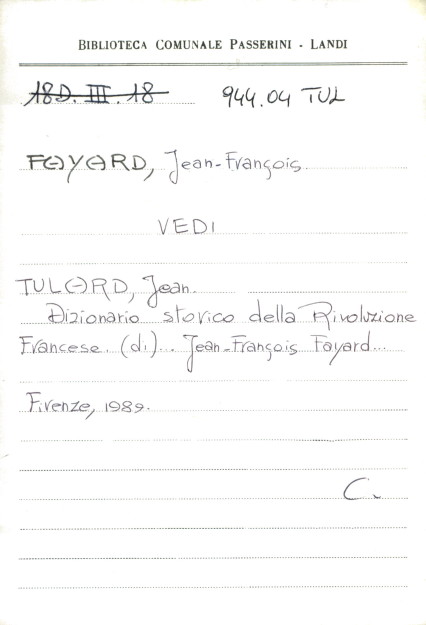 BIBLIOTECA COMUNALE PASSERINI - LANDI
18D. III. 18 944.04 TUL
FAYARD, Jean-François
VEDI
TULARD, Jean.
Dizionario storico della Rivoluzione
Francese. (di)... Jean-François Fayard...
Firenze, 1989.
C.